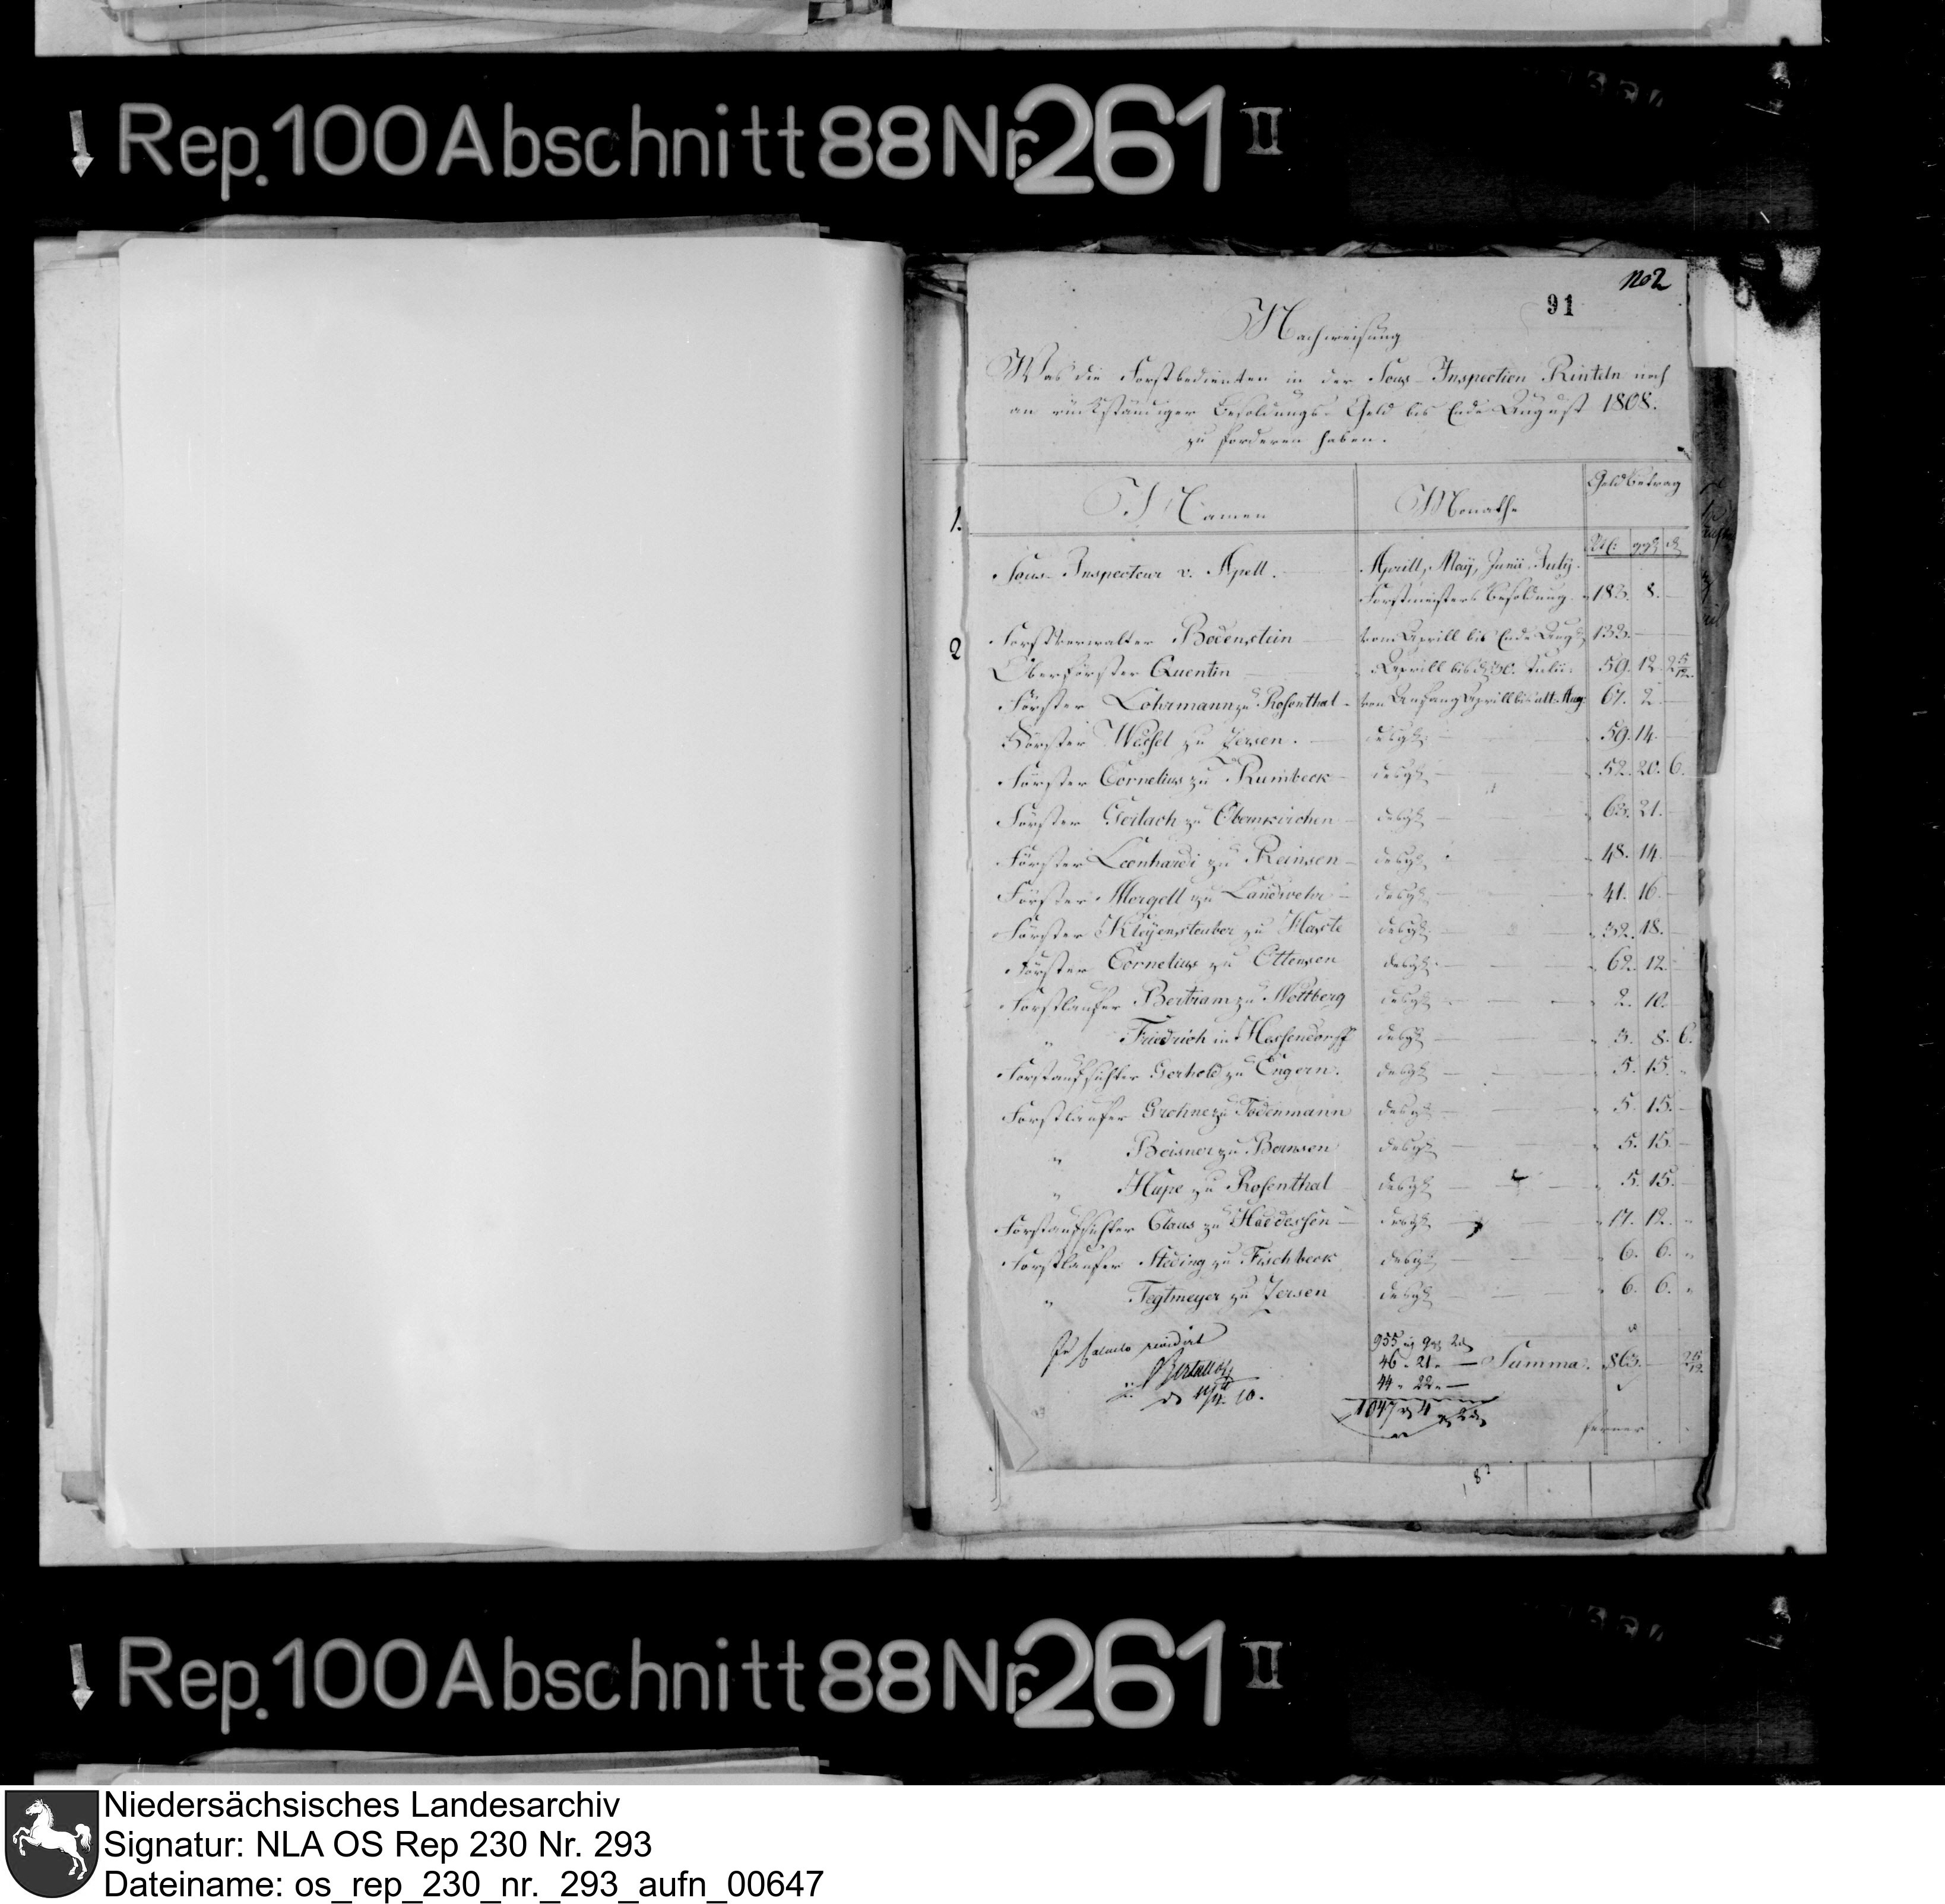 Rep. 100 Abschnitt 88 Nr. 261 II
No 2
91
Nachweisung
Was die Forstbedienten in der Sous-Inspection Rinteln noch
an rückständiger Besoldungs-Geld bis Ende August 1808.
zu forderen haben.
Namen Monathe Geldbetrag
1.
Rthl: ggl d
Sous-Inspecteur v. Apell. Aprill, May, Junii, July.
Forstmeisters Besoldung 183. 8. —
Forstverwalter Bodenstein vom Aprill bis Ende Aug. 133. — —
2
Oberförster Quentin Aprill bis d. 30. Julii. 59. 12 2 5/12
Förster Lohrmann zu Rosenthal von Anfang Aprill bis ult. Aug. 67. 2. —
Förster Wessel zu Zersen. desgl. 59. 14. —
Förster Cornelius zu Rumbeck desgl. 52. 20. 6.
Förster Gerlach zu Obernkirchen desgl. 63. 21. —
Förster Leonhardi zu Reinsen desgl. 48. 14. —
Förster Morgell zu Landwehr desgl. 41. 16. —
Förster Kleyensteuber zu Haste desgl. 32. 18. —
Förster Cornelius zu Ottensen desgl. 62. 12. —
Forstlaufer Bertram zu desgl. 2. 10. —
" Friedrich in Hessendorff desgl. 3. 8. 6.
Forstaufsichter Gerhold zu Engern. desgl. 5. 15. "
Forstlaufer Grohne zu Todenmann desgl. 5. 15. —
" Beisner zu Bensen desgl. 5. 15. —
" Hupe zu Rosenthal desgl. 5. 15. —
Forstaufsichter Claus zu Haddessen desgl. 17. 12. "
Forstlaufer Steding zu Fischbeck desgl. 6. 6. "
" Tegtmeyer zu Zersen desgl. 6. 6. "
In Calculo revidirt 955 9 2
46 " 21 " — Summa. 863.
44 " 22 " —
10.
1047 4 2
ferner
Rep. 100 Abschnitt 88 Nr. 261 II
Niedersächsisches Landesarchiv
Signatur: NLA OS Rep 230 Nr. 293
Dateiname: os_rep_230_nr._293_aufn_00647